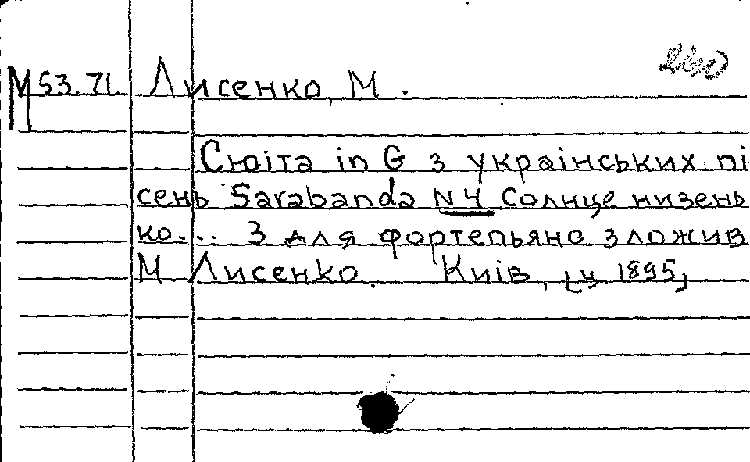 M 53.71 Лисенко, М.
Сюіта in G з украінських пі
сень Sarabanda N 4 Солнце низень
ко... З для фортепьяно зложив
М Лисенко. Киів, [ч 1895]